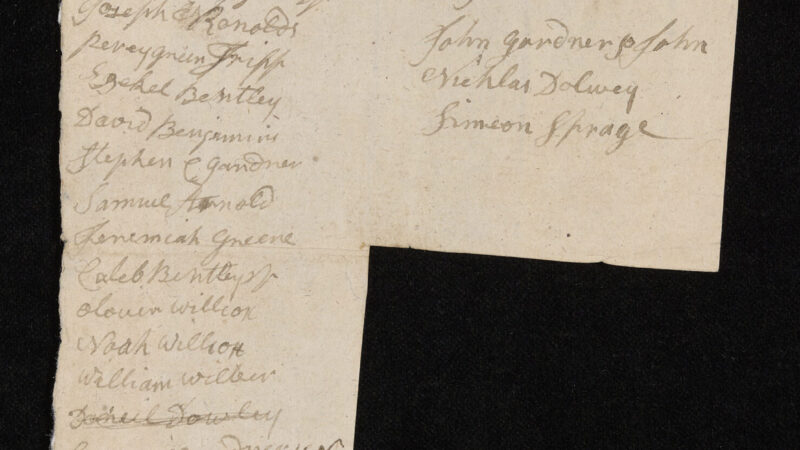 Joseph Renolds
pereygreen Tripp
Esekel Bentley
David Benjamin
Stephen C gardner
Samuel Arnold
Jeremiah Greene
Caleb Bentley
olover willcox
Noah Willcox
William wilber
Dowley
John gardner John
Nichlas Dolwey
Simeon Sprage